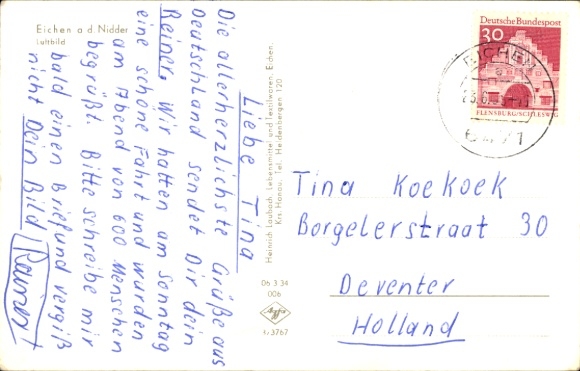 Eichen a. d. Nidder
Luftbild
Liebe Tina
Die allerherzlichste Grüße aus
Deutschland sendet Dir dein
Reiner. Wir hatten am Sonntag
eine schöne Fahrt und wurden
am Abend von 600 Menschen
begrüßt. Bitte schreibe mir
bald einen Brief und vergiß
nicht Dein Bild
Rainer
Heinrich Laubach, Lebensmittel und Textilwaren, Eichen,
Krs. Hanau, Tel. Heldenbergen 120
06 3 34
006
Agfa
Deutsche Bundespost
30
FLENSBURG/SCHLESWIG
EICHEN
Tina Koekoek
Borgelerstraat 30
Deventer
Holland